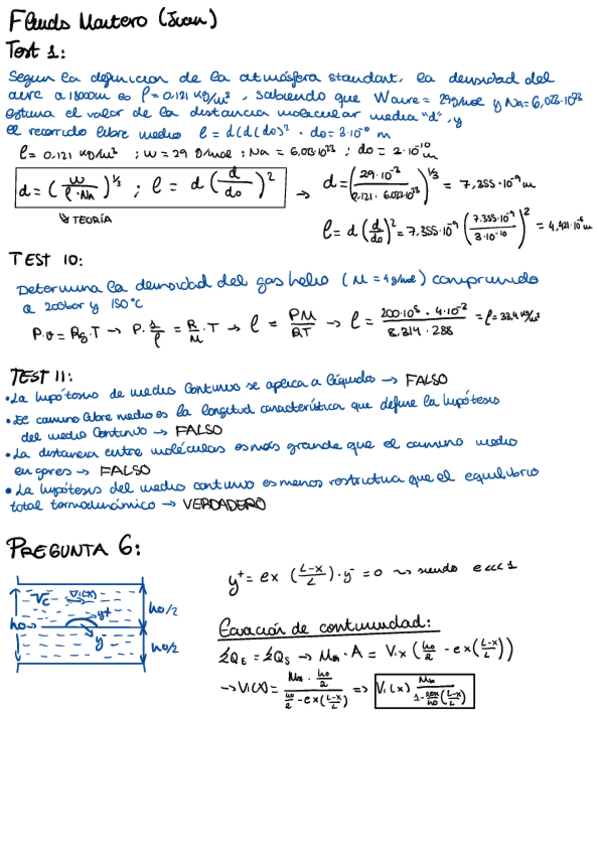 Fluids Montero (Juan)
Test 1:
Segun la definicion de la atmósfera standart. la densidad del
aire a 18000m es ρ=0,121 kg/m³, sabiendo que Waire= 29g/mol y NA=6,023·10²³
estima el valor de la distancia molecular media "d", y
el recorrido libre medio ℓ= d(d(do)². do= 3·10⁻¹⁰ m
ρ= 0,121 kg/m³ ; W= 29 g/mol ; Na = 6,023·10²³ ; do = 2·10⁻¹⁰ m
d=(W/ρ·Na)^1/3 ; ℓ= d(d/do)² → d=(29·10⁻³/0,121·6.023·10²³)^1/3 = 7,355·10⁻⁹ m
↳ TEORÍA
ℓ= d(d/do)²= 7,355·10⁻⁹(7.355·10⁻⁹/3·10⁻¹⁰)² = 4,421·10⁻⁶ m
TEST 10:
Determina la densidad del gas helio (M=4g/mol) comprimido
a 200bar y 150°C
P·v= Rg·T → P·1/ρ = R/M·T → ρ = PM/RT → ρ = 200·10⁵·4·10⁻³/8.314·288 =ρ=33,4 kg/m³
TEST 11:
• La hipótesis de medio continuo se aplica a líquidos → FALSO
• El camino libre medio es la longitud característica que define la hipótesis
del medio continuo → FALSO
• La distancia entre moléculas es más grande que el camino medio
en gases → FALSO
• La hipótesis del medio continuo es menos restrictiva que el equilibrio
total termodinámico → VERDADERO
PREGUNTA 6:
y⁺ = εx (L-x/L)·y⁻ = 0 → siendo ε<<<1
Vc Vi(x)
y+
ho/2
ho
y⁻
ho/2
Ecuación de continuidad:
ΣQE = ΣQS → M∞·A = Vix (ho/2 - εx(L-x/L))
→ Vi(x)= M∞·ho/2 / ho/2 - εx(L-x/L) ⇒ Vi(x) M∞ / 1-2εx/ho(L-x/L)